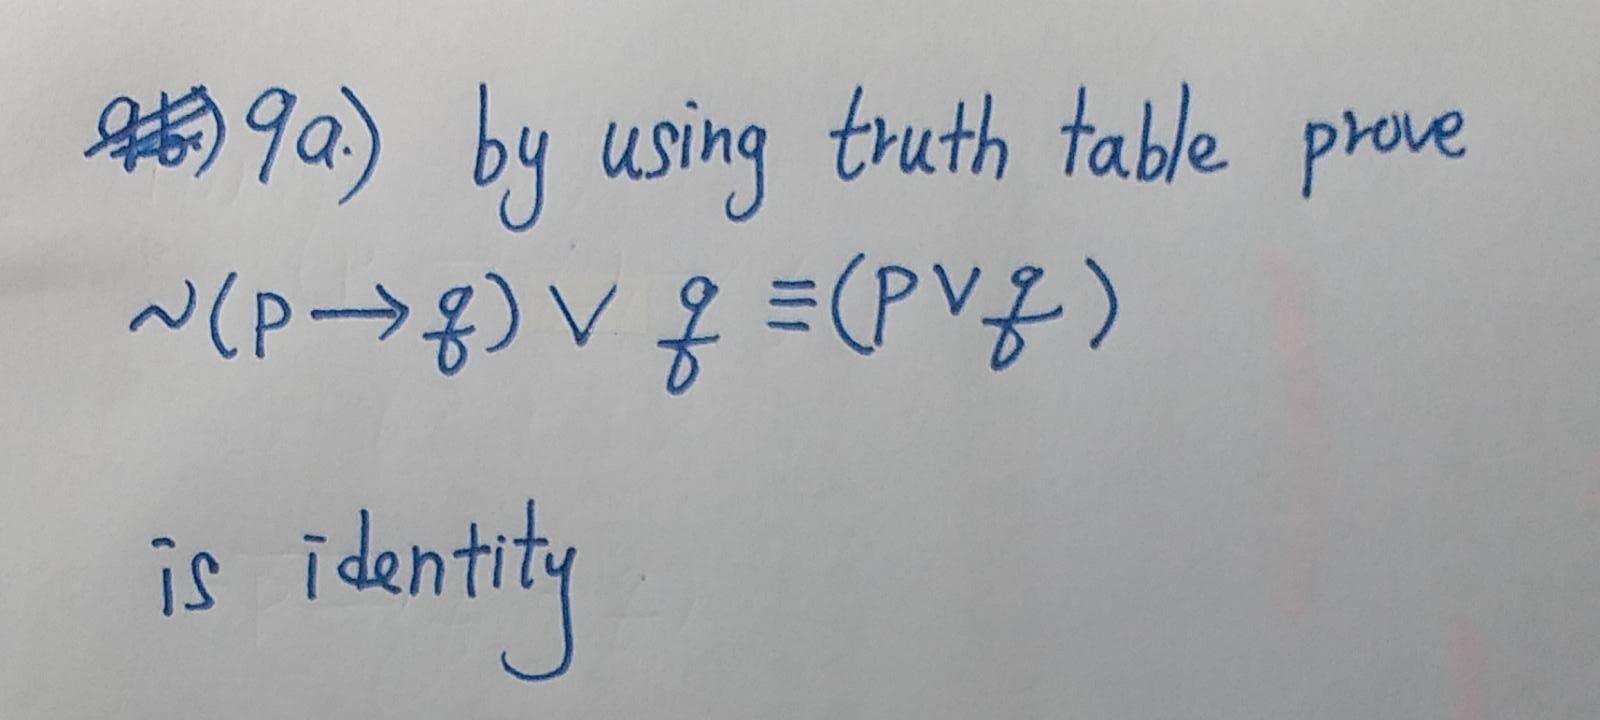 9a.) by using truth table prove
~(p→q) ∨ q ≡(p∨q)
is identity